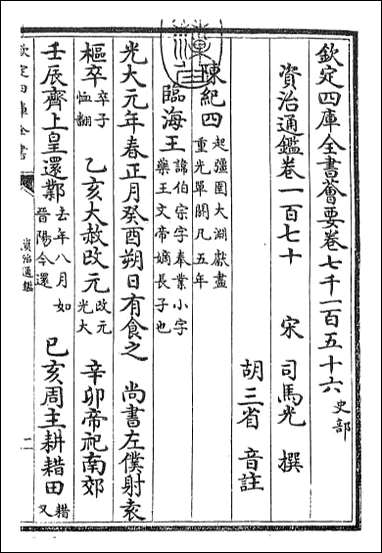 欽定四庫全書薈要卷七千一百五十六 史部
資治通鑑卷一百七十 宋 司馬光 撰
胡三省 音註
陳紀四 起彊圉大淵獻盡重光單閼凡五年
臨海王 諱伯宗字奉業小字藥王文帝嫡長子也
光大元年春正月癸酉朔日有食之 尚書左僕射袁
樞卒 卒子恤翻 乙亥大赦改元 改元光大 辛卯帝祀南郊
壬辰齊上皇還鄴 去年八月如晉陽今還 巳亥周主耕耤田 耤又
欽定四庫全書
資治通鑑